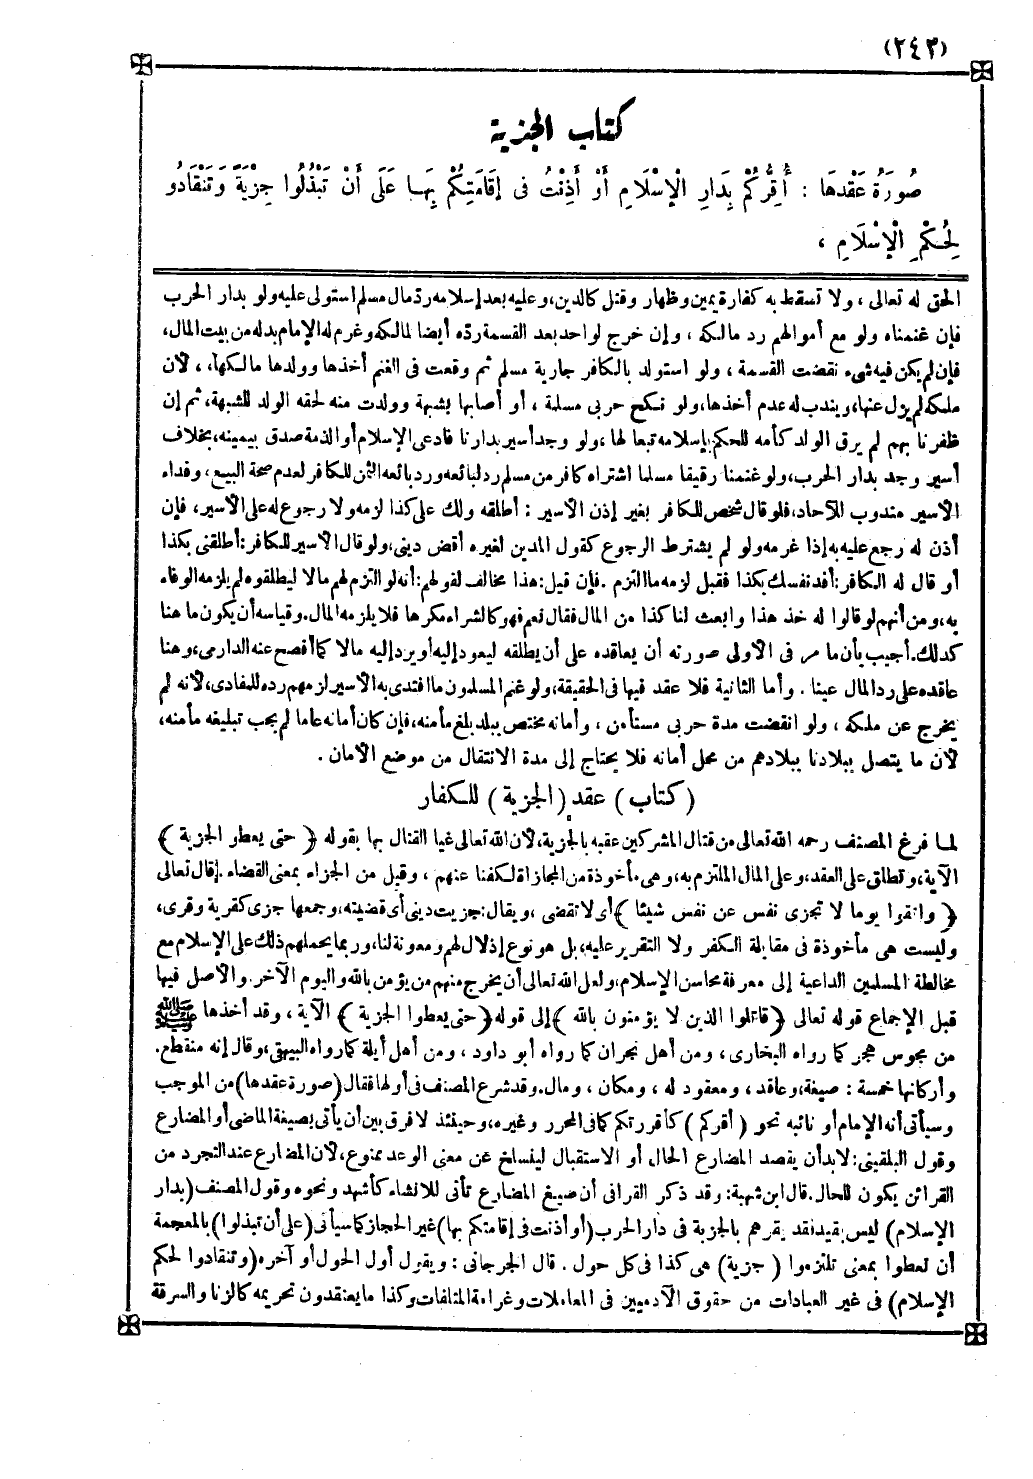 (٢٤٣)
كتاب الجزية
صُورَةُ عَقْدِهَا : أُقِرُّكُمْ بِدَارِ الْإِسْلَامِ أَوْ أَذِنْتُ فى إِقَامَتِكُمْ بِهَا عَلَى أَنْ تَبْذُلُوا جِزْيَةً وَتَنْقَادُو
لِحُكْمِ الْإِسْلَامِ ،
الحق له تعالى ، ولا تسقط به كفارة يمين وظهار وقتل كالدين، وعليه بعد إسلامه رد مال مسلم استولى عليه ولو بدار الحرب
فإن غنمناه ولو مع أموالهم رد مالكه ، وإن خرج لواحد بعد القسمة رده أيضا لمالكه وغرم له الإمام بدله من بيت المال،
فإن لم يكن فيه شىء نقضت القسمة ، ولو استولد بالكافر جارية مسلم ثم وقعت فى الغنم أخذها وولدها مالكها، ، لأن
ملكه لم يزل عنها، ويندب له عدم أخذها، ولو نكح حربى مسلمة ، أو أصابها بشبهة وولدت منه لحقه الولد للشبهة، ثم إن
ظفرنا بهم لم يرق الولد كأمه للحكم بإسلامه تبعا لها ، ولو وجد أسير بدارنا فادعى الإسلام أو الذمة صدق بيمينه، بخلاف
أسير وجد بدار الحرب، ولو غنمنا رقيقا مسلما اشتراه كافر من مسلم رد لبائعه ورد بائعه الثمن للكافر لعدم صحة البيع ، وفداء
الأسير مندوب للآحاد، فلو قال شخص للكافر بغير إذن الأسير : أطلقه ولك على كذا لزمه ولا رجوع له على الأسير، فإن
أذن له رجع عليه به إذا غرمه ولو لم يشترط الرجوع كقول المدين لغيره أقض دينى، ولو قال الأسير للكافر: أطلقنى بكذا
أو قال له الكافر: أفد نفسك بكذا فقبل لزمه ما التزم . فإن قيل: هذا مخالف لقولهم: أنه لو التزم لهم مالا ليطلقوه لم يلزمه الوفاء
به، ومن أنهم لو قالوا له خذ هذا وابعث لنا كذا من المال فقال نعم فهو كالشراء مكرها فلا يلزمه المال. وقياسه أن يكون ما هنا
كذلك. أجيب بأن ما مر فى الأولى صورته أن يعاقده على أن يطلقه ليعود إليه أو يرد إليه مالا كما أفصح عنه الدارمى، وهنا
عاقده على رد المال عينا . وأما الثانية فلا عقد فيها فى الحقيقة، ولو غنم المسلمون ما افتدى به الأسير لزمهم رده للمفادى، لأنه لم
يخرج عن ملكه ، ولو انقضت مدة حربى مستأمن ، وأمانه مختص ببلد بلغ مأمنه، فإن كان أمانه عاما لم يجب تبليغه مأمنه،
لأن ما يتصل ببلادنا ببلادهم من محل أمانه فلا يحتاج إلى مدة الانتقال من موضع الأمان .
(كتاب) عقد (الجزية) للكفار
لما فرغ المصنف رحمه الله تعالى من قتال المشركين عقبه بالجزية، لأن الله تعالى غيا القتال بها بقوله ﴿ حتى يعطو الجزية ﴾
الآية، وتطلق على العقد، وعلى المال الملتزم به، وهى مأخوذة من المجازاة لكفنا عنهم ، وقيل من الجزاء بمعنى القضاء . قال تعالى
﴿ واتقوا يوما لا تجزى نفس عن نفس شيئا ﴾ أى لا تقضى ، ويقال: جزيت دينى أى قضيته، وجمعها جزى كقرية وقرى،
وليست هى مأخوذة فى مقابلة الكفر ولا التقرير عليه، بل هو نوع إذلال لهم ومعونة لنا، وربما يحملهم ذلك على الإسلام مع
مخالطة المسلمين الداعية إلى معرفة محاسن الإسلام، ولعل الله تعالى أن يخرج منهم من يؤمن بالله واليوم الآخر. والأصل فيها
قبل الإجماع قوله تعالى ﴿قاتلوا الذين لا يؤمنون بالله ﴾ إلى قوله ﴿حتى يعطوا الجزية ﴾ الآية ، وقد أخذها ﷺ
من مجوس هجر كما رواه البخارى ، ومن أهل نجران كما رواه أبو داود ، ومن أهل أيلة كما رواه البيهقى، وقال إنه منقطع.
وأركانها خمسة : صيغة، وعاقد ، ومعقود له ، ومكان ، ومال. وقد شرع المصنف فى أولها فقال (صورة عقدها) من الموجب
وسيأتى أنه الإمام أو نائبه نحو ( أقركم ) كأقررتكم كما فى المحرر وغيره، وحينئذ لا فرق بين أن يأتى بصيغة الماضى أو المضارع
وقول البلقينى: لابد أن يقصد المضارع الحال أو الاستقبال لينسلخ عن معنى الوعد ممنوع، لأن المضارع عند التجرد من
القرائن يكون للحال. قال ابن شهبة: وقد ذكر القرافى أن صيغ المضارع تأتى للانشاء كأشهد ونحوه وقول المصنف (بدار
الإسلام) ليس بقيد فقد يقرهم بالجزية فى دار الحرب (أو أذنت فى إقامتكم بها) غير الحجاز كما سيأتى (على أن تبذلوا) بالمعجمة
أن تعطوا بمعنى تلتزموا ( جزية) هى كذا فى كل حول . قال الجرجانى : ويقول أول الحول أو آخره (وتنقادوا لحكم
الإسلام) فى غير العبادات من حقوق الآدميين فى المعاملات وغرامة المتلفات وكذا ما يعتقدون تحريمه كالزنا والسرقة